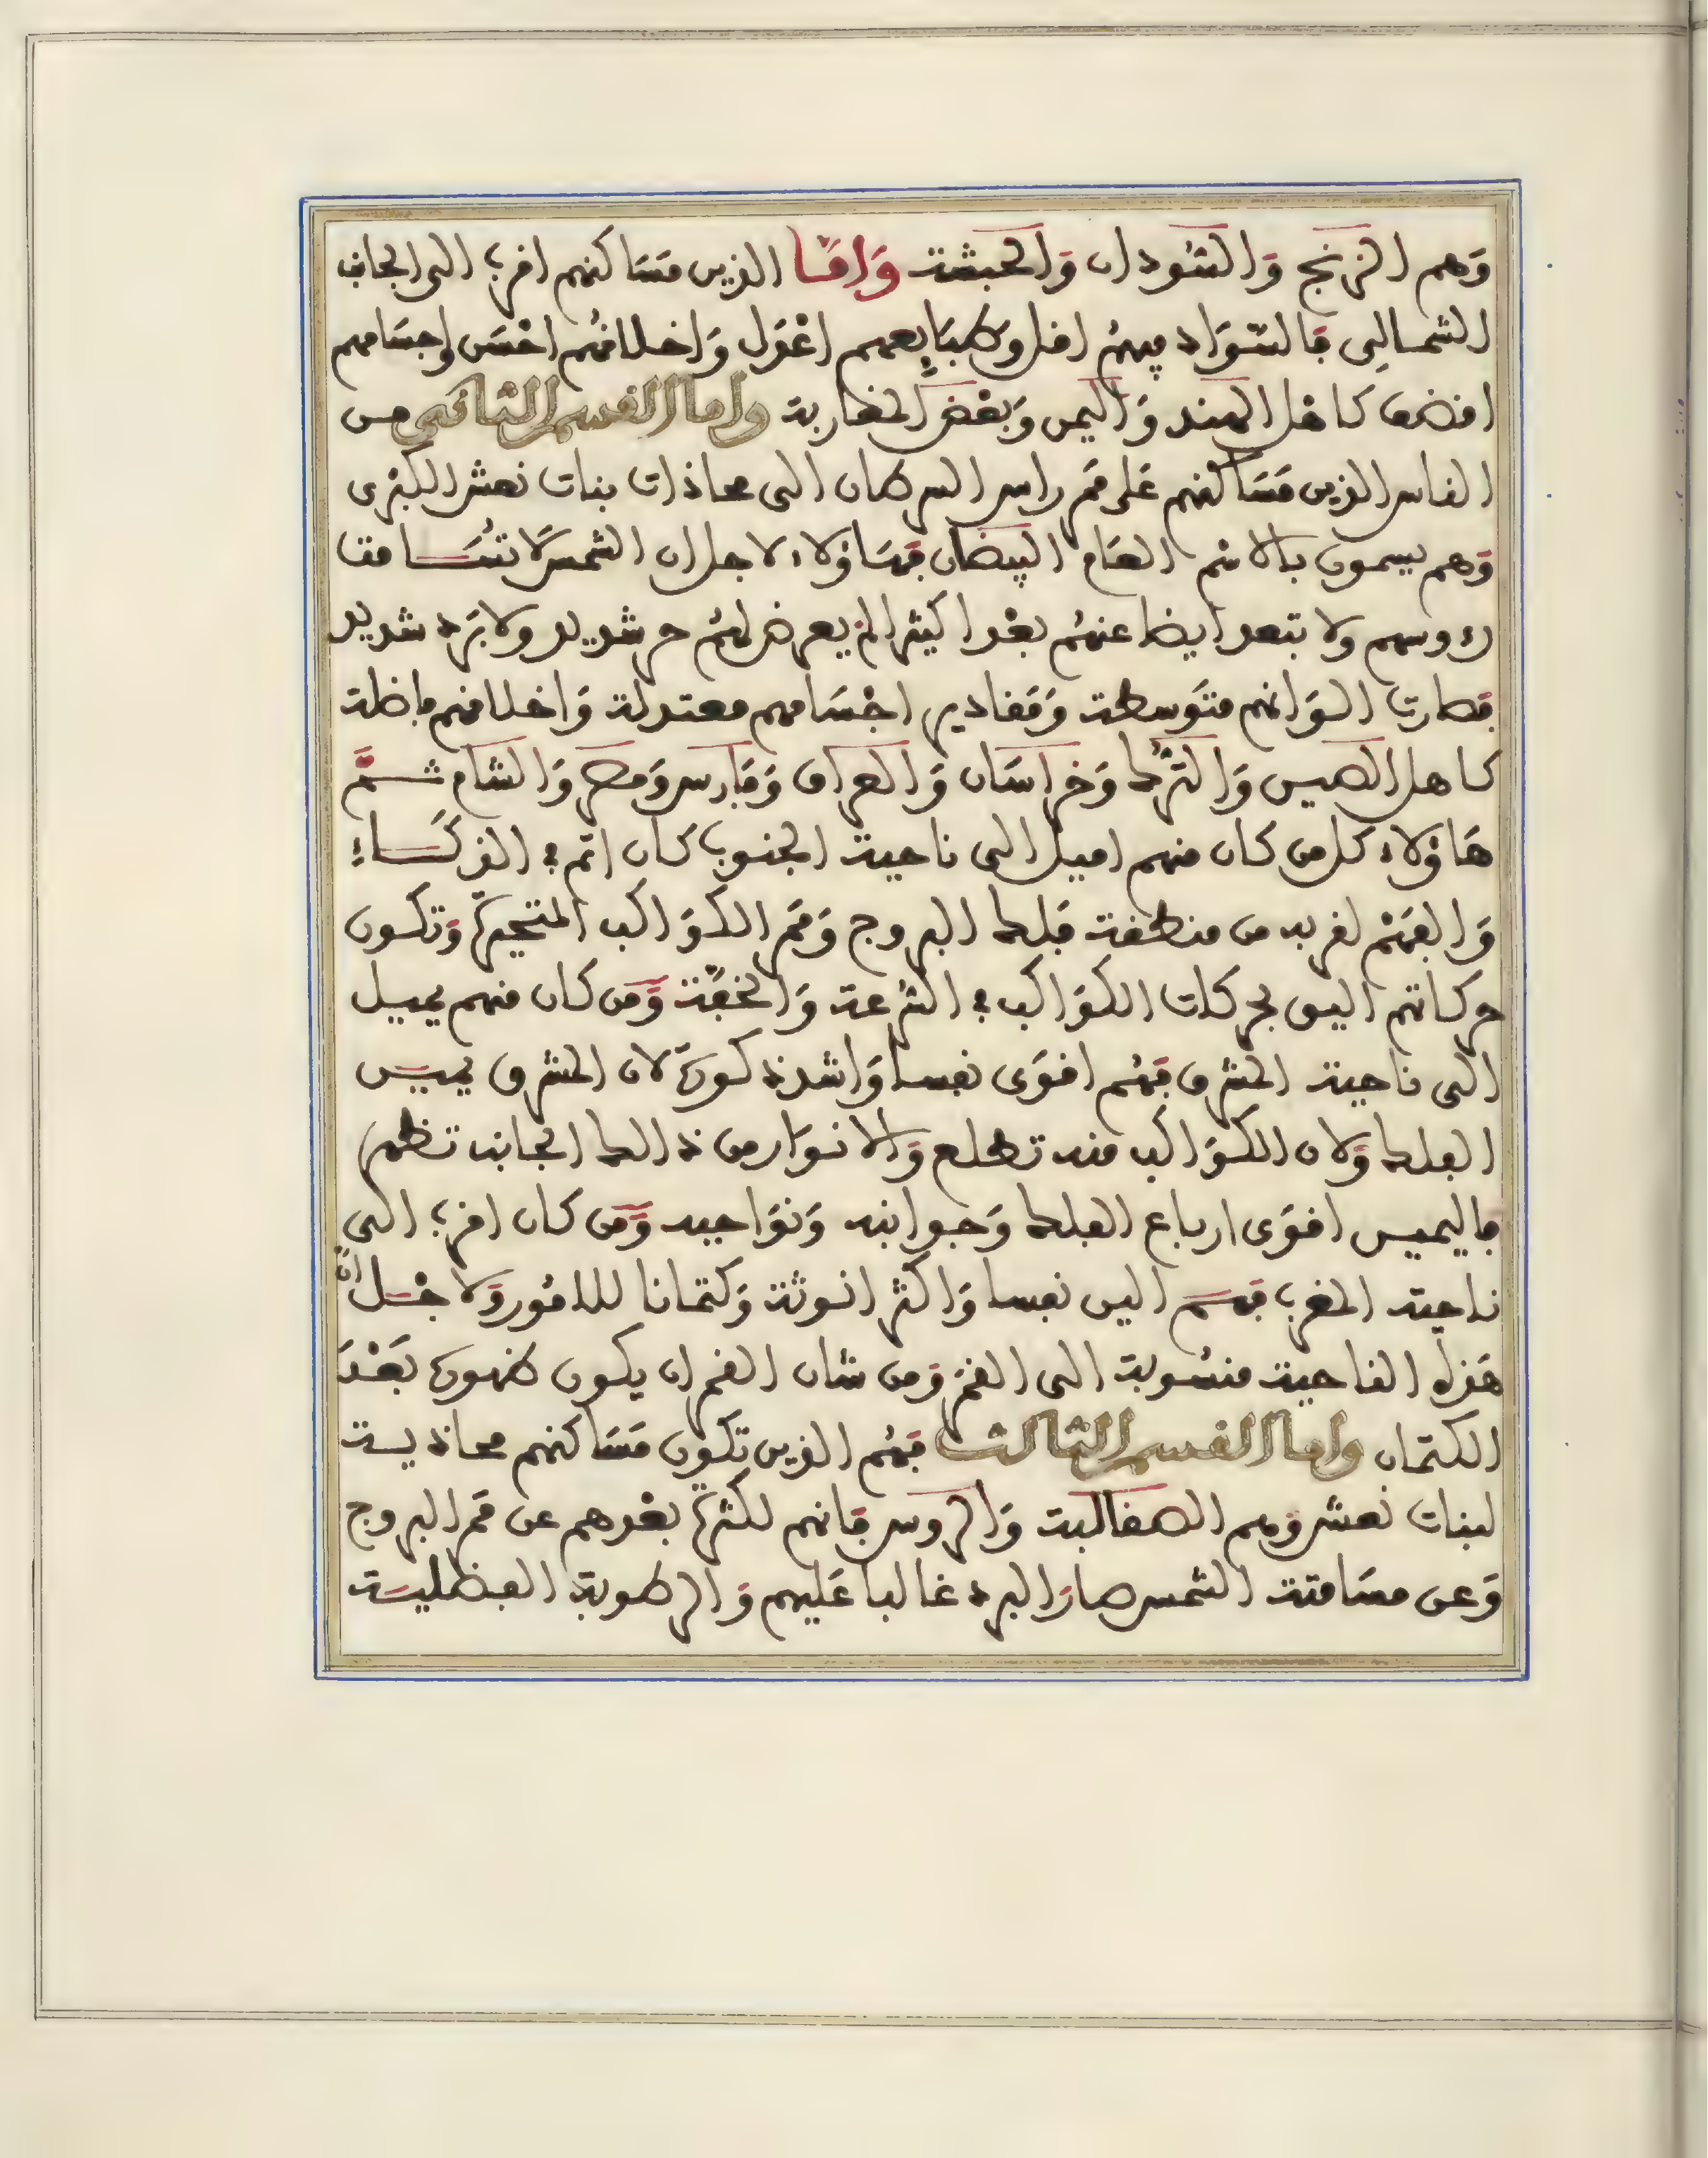 وَهم الزنج وَالسُودان وَالحَبشة وَامَّا الذين مَسَاكنهم اقرب الى الجانب
الشمالِى فالسّوَاد فيهمُ اقل وَطبَايعهم اعْدَل وَاخلاقهُم احْسَن واجسَامهم
انضف كاهْل الهند وَاليمن وَبَعْض المغاربة واما القسم الثانى من
الناس الذين مَسَاكنهم عَلى ممَر راس السرطان الى محاذات بنات نعش الكبْرى
وَهم يسمون بالاسْم العَام البيضان فهَاؤلاء لاجل ان الشمس لا تُسَامت
رءوسهم ولا تبعد ايضا عنهُم بعْدا كثيرا لم يعرض لهُم حر شديد ولا بَرد شديد
فصارت الوَانهم متوَسطة وَمَقادير اجْسَامهم معتدلة وَاخلاقهم فاضلة
كاهل الصين وَالتُّرك وَخرَاسَان وَالعراق وَفَارس وَمصر وَالشام ثــمَّ
هَاؤلاء كل من كان منهم اميل الى ناحية الجنوب كان اتم في الذكَــاء
وَالفَهْم لقربه من منطقة فَلك البروج وَممَر الكوَاكب المتحيرَّة وَتكون
حركاتهم اليق بحركات الكوَاكب في السُرعة وَالخفَّة وَمَن كان منهم يميل
الى ناحية المشرق فهُم اقوَى نفسا وَاشد ذكورَة لان المشرق يميــن
الفلك وَلان الكوَاكب منه تطلع وَالانوَار من ذالك الجانب تظهر
فاليميـن اقوَى ارباع الفلك وَجوانبه وَنوَاحيه وَمَن كان اقرب الى
ناحية المغرب فهــم الين نفسا وَاكثر انوثة وَكتمانا للامُور وَلاجْــل انَّ
هَذه الناحية منسُوبة الى القمَر وَمن شان القمر ان يكون ظهورهُ بَعْـدَ
الكتمان واما القسم الثالث فهُم الذين تكون مَسَاكنهم محاذيــة
لبنات نعش وَهم الصقالبة وَالروس فانهم لكثرة بعْدهم عن ممَر البروج
وَعن مسَامتة الشمس صارَ البرد غالبا عَليهم وَالرطوبة الفضليـة